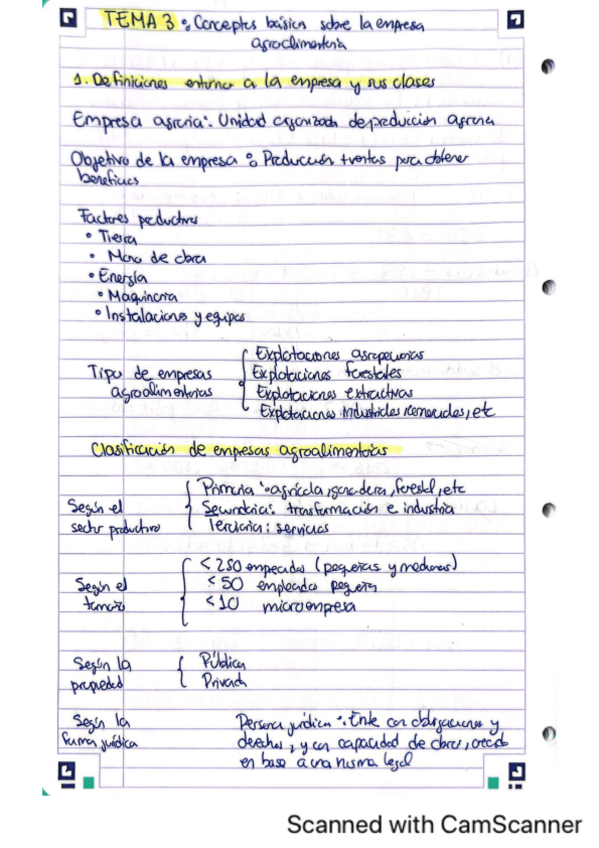 TEMA 3: Conceptos básicos sobre la empresa
agroalimentaria
1. Definiciones entorno a la empresa y sus clases
Empresa agraria: Unidad organizada de producción agraria
Objetivo de la empresa: Producción + ventas para obtener
beneficios
Factores productivos
• Tierra
• Mano de obra
• Energía
• Maquinaria
• Instalaciones y equipos
Tipo de empresas
agroalimentarias
Explotaciones agropecuarias
Explotaciones forestales
Explotaciones extractivas
Explotaciones industriales comerciales, etc
Clasificación de empesas agroalimentarias
Según el
sector productivo
Primaria: agrícola, ganadera, forestal, etc
Secundaria: transformación e industria
Terciaria: servicios
Según el
tamaño
< 250 empleados (pequeñas y medianas)
< 50 empleados pequeña
< 10 microempresa
Según la
propiedad
Pública
Privada
Según la
forma jurídica
Persona jurídica: Ente con obligaciones y
derechos, y con capacidad de obrar, creado
en base a una norma legal
Scanned with CamScanner